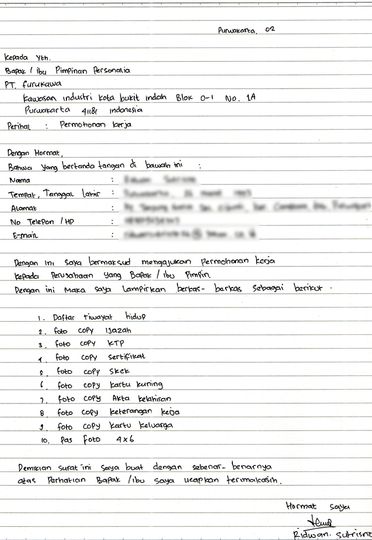 Purwakarta, 02
Kepada Yth.
Bapak / Ibu Pimpinan Personalia
PT. Furukawa
Kawasan Industri Kota bukit indah Blok D-1 No. 1A
Purwakarta 41181 Indonesia
Perihal : Permohonan kerja
Dengan Hormat,
Bahwa yang bertanda tangan di bawah ini :
Nama :
Tempat, Tanggal lahir :
Alamat :
No Telepon / HP :
E-mail :
Dengan ini saya bermaksud mengajukan Permohonan kerja
kepada Perusahaan yang Bapak / Ibu Pimpin.
Dengan ini Maka saya lampirkan berkas-barkas sebagai berikut.
1. Daftar riwayat hidup
2. foto copy Ijazah
3. foto copy KTP
4. foto copy sertifikat
5. foto copy skck
6. foto copy kartu kuning
7. foto copy Akta kelahiran
8. foto copy keterangan kerja
9. foto copy kartu keluarga
10. Pas foto 4x6
Demikian surat ini saya buat dengan sebenar-benarnya
atas Perhatian Bapak / Ibu saya ucapkan terimakasih.
Hormat saya
Ridwan Sutrisno